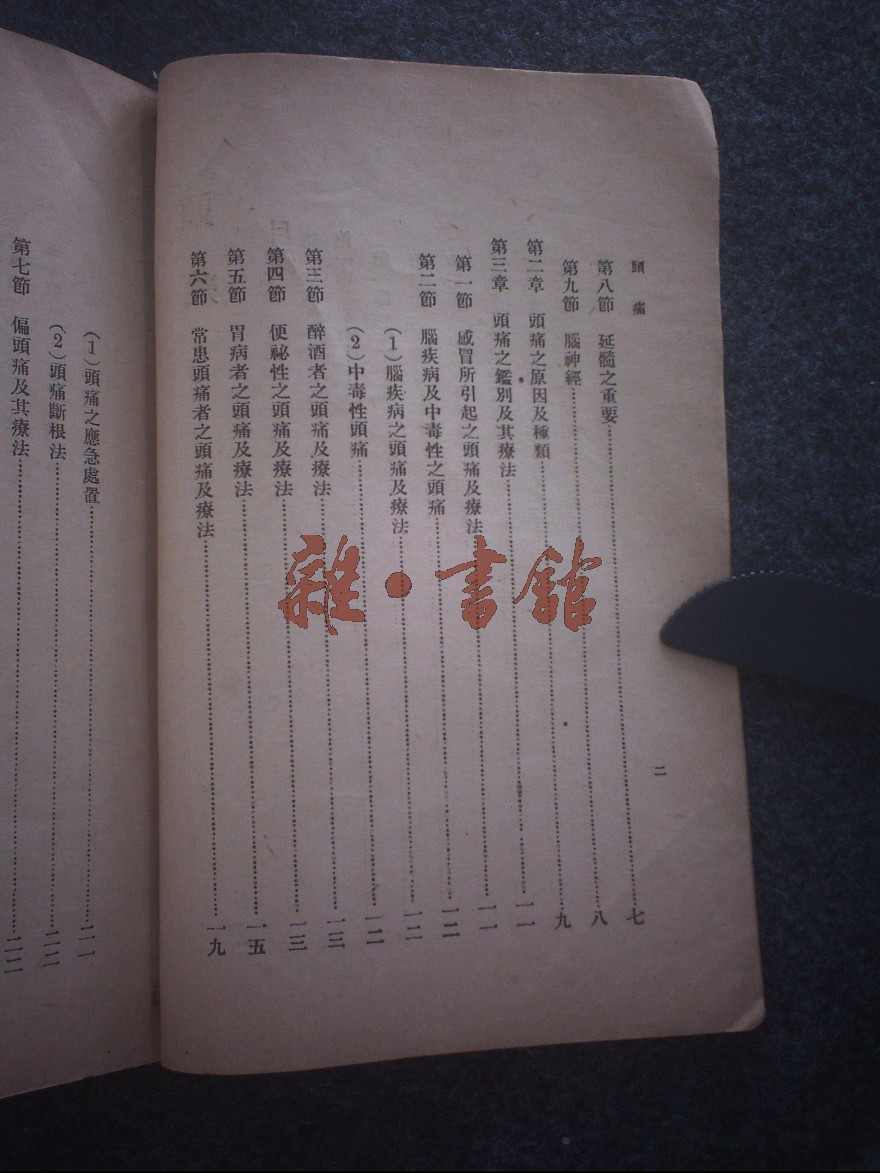 頭痛
二
第八節 延髓之重要……七
第九節 腦神經……八
第二章 頭痛之原因及種類……九
第三章 頭痛之鑑別及其療法……一一
第一節 感冒所引起之頭痛及療法……一一
第二節 腦疾病及中毒性之頭痛……一二
(1)腦疾病之頭痛及療法……一二
(2)中毒性頭痛……一二
第三節 醉酒者之頭痛及療法……一三
第四節 便祕性之頭痛及療法……一三
第五節 胃病者之頭痛及療法……一五
第六節 常患頭痛者之頭痛及療法……一九
(1)頭痛之應急處置……二一
(2)頭痛斷根法……二二
第七節 偏頭痛及其療法……二二
雜·書館